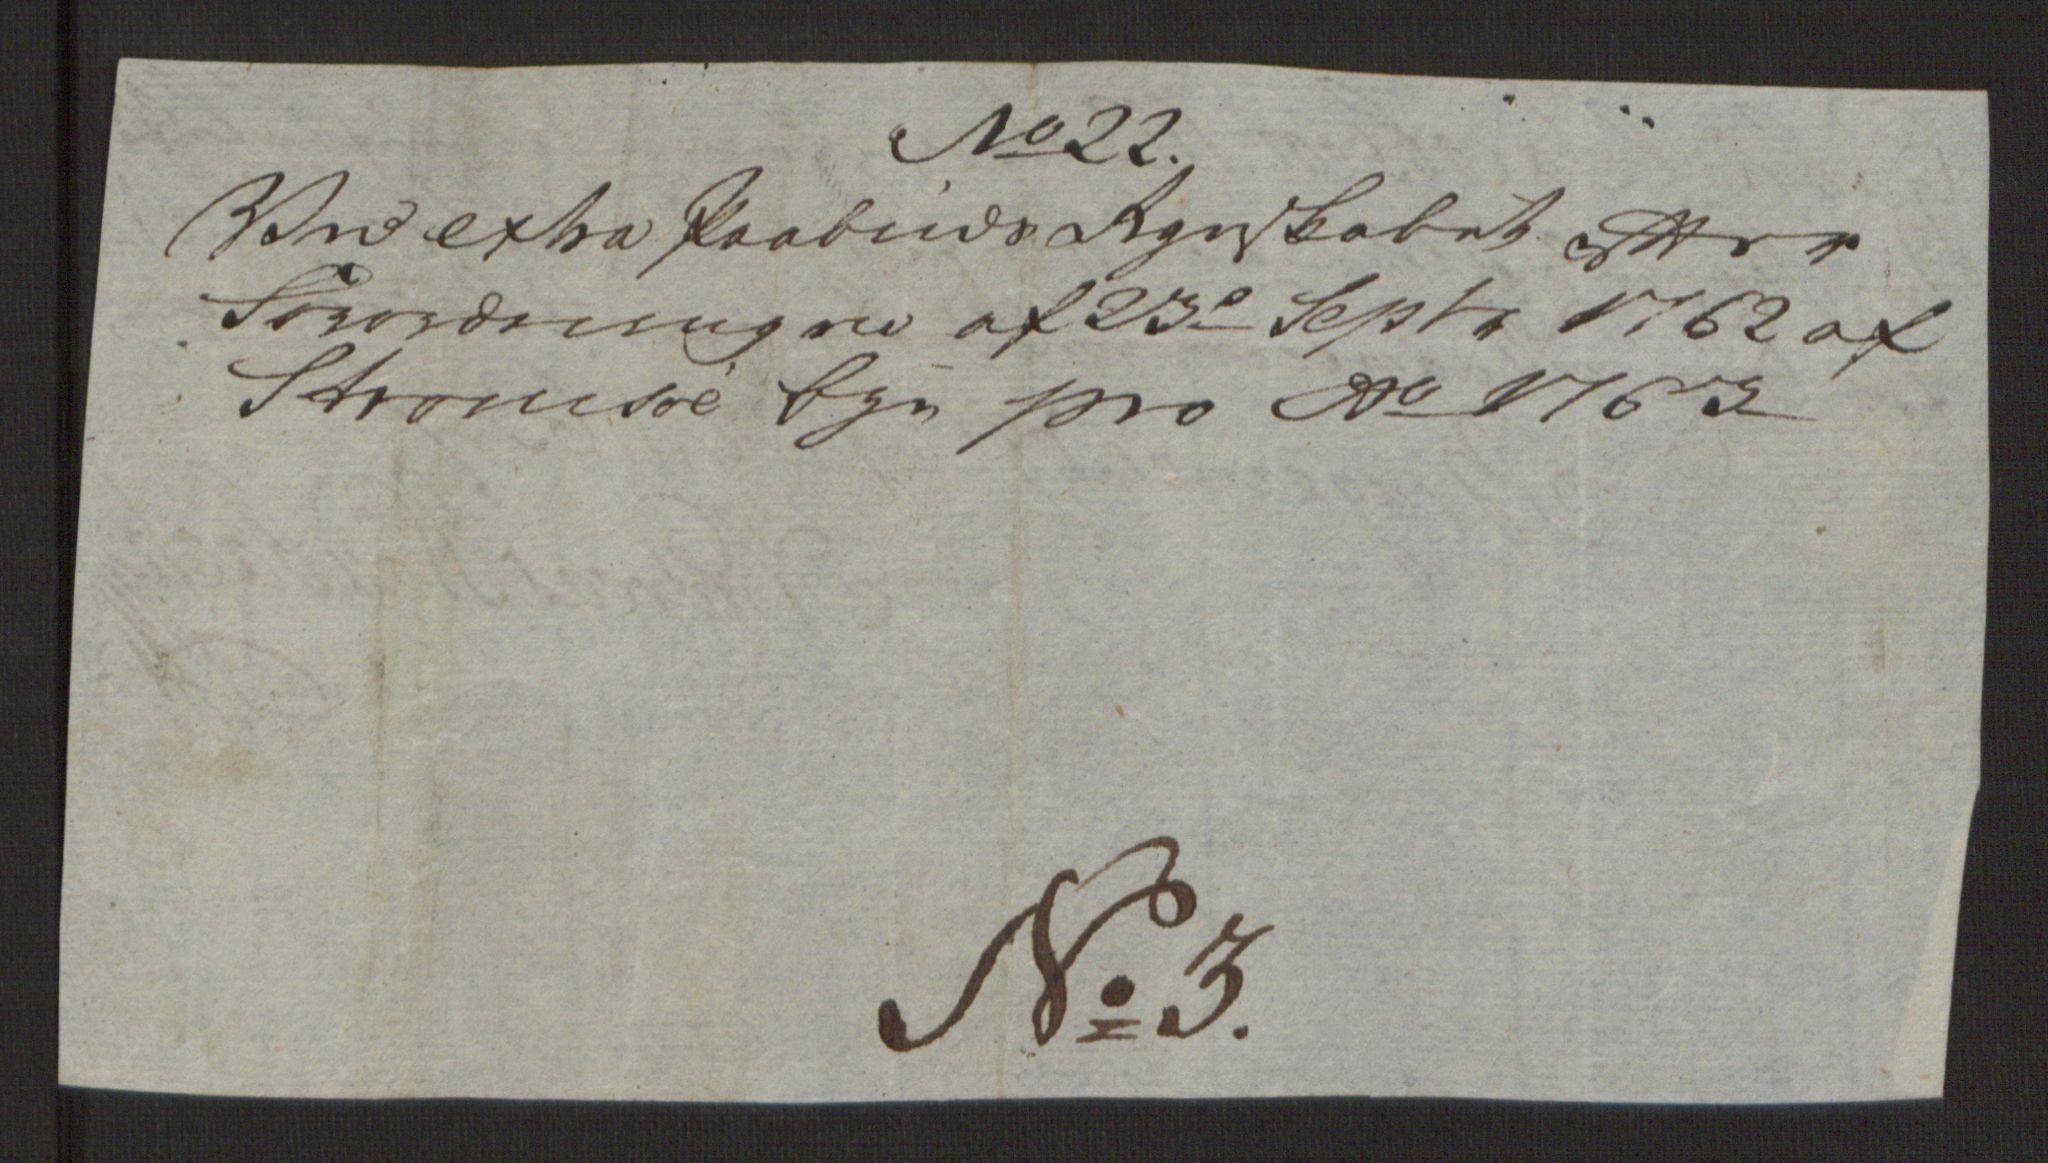 No 22.
Ved extra Paabuds Regnskabet efter
Forordningen af 23de Septr 1762 af
Stromsøe bye pro Ao 1763
No 3.